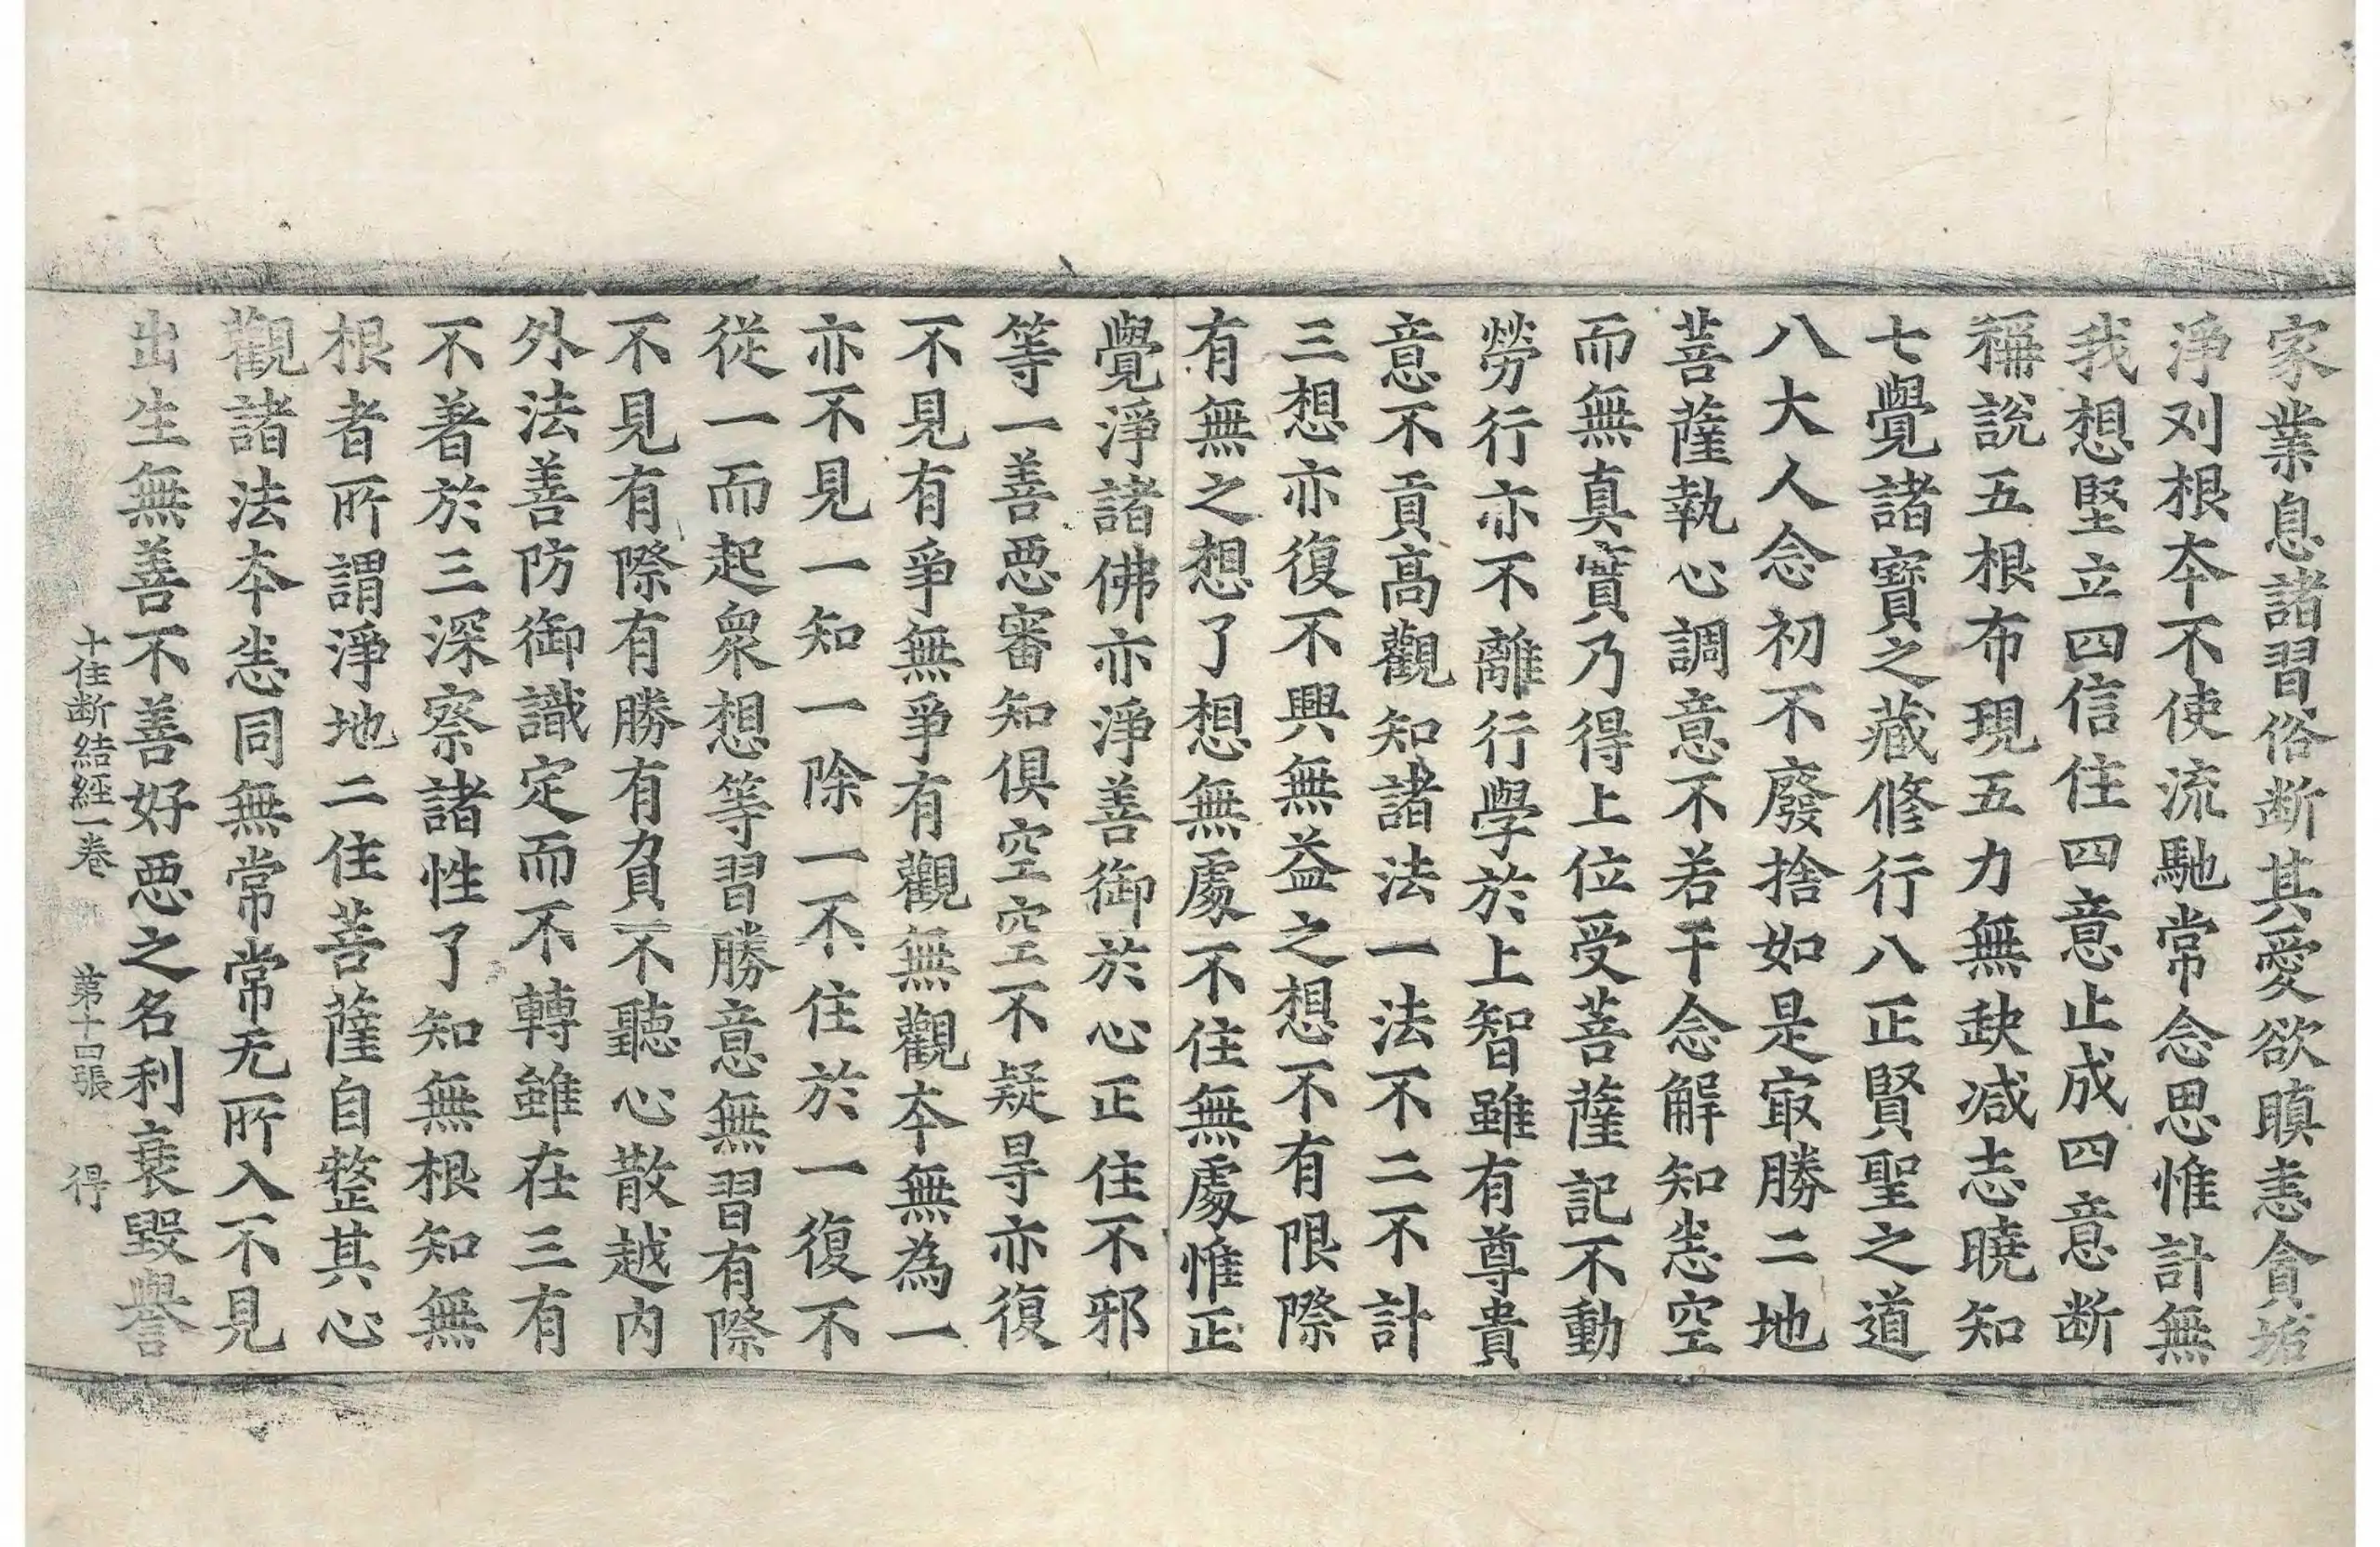 家業息諸習俗断其愛欲瞋恚貪垢
淨刈根夲不使流馳常念思惟計無
我想堅立四信住四意止成四意断
稱說五根布現五力無缺減志曉知
七覺諸寶之藏修行八正賢聖之道
八大人念初不廢捨如是㝡勝二地
菩薩執心調意不若干念解知恚空
而無真實乃得上位受菩薩記不動
勞行亦不離行學於上智雖有尊貴
意不貢高觀知諸法一法不二不計
三想亦復不興無益之想不有限際
有無之想了想無處不住無處惟正
覺淨諸佛亦淨善御於心正住不邪
等一善惡審知俱空空不疑㝵亦復
不見有爭無爭有觀無觀夲無為一
亦不見一知一除一不住於一復不
從一而起衆想等習勝意無習有際
不見有際有勝有負不聽心散越内
外法善防御識定而不轉雖在三有
不著於三深察諸性了知無根知無
根者所謂淨地二住菩薩自整其心
觀諸法夲恚同無常常无所入不見
出生無善不善好惡之名利衰毀譽
十住断結經一卷 第十四張 得